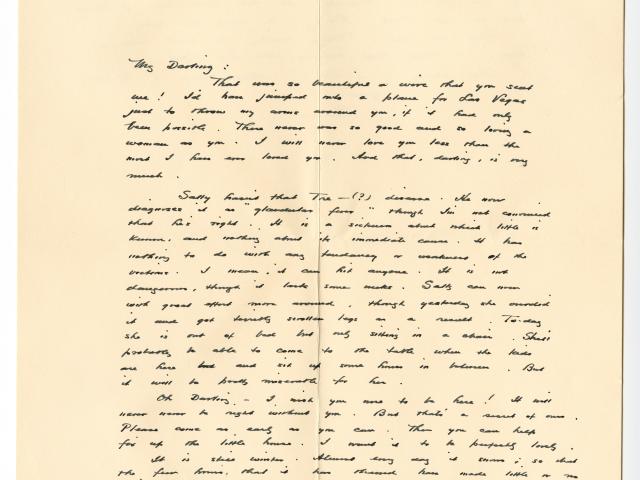 My Darling:
That was so beautiful a wire that you sent
me! I'd have jumped into a plane for Las Vegas
just to throw my arms around you, if I had only
been possible. There never was so good and so loving a
woman as you. I will never love you less than the
most I have ever loved you. And that, darling, is very
much.
Sally hasn't that Tre—(?) disease. He now
diagnoses it as "glandular fever" though I'm not convinced
that he's right. It is a sickness about which little is
known, and nothing about its immediate cause. It has
nothing to do with any tendency or weakness of the
victims. I mean, it can hit anyone. It is not
dangerous, though it lasts some weeks. Sally can now
with great effort move around, though yesterday she
it and got terribly swollen legs as a result. To-day
she is out of bed but only sitting in a chair. She'll
probably be able to come to the table when the kids
are here and sit up some hours in between. But
it will be pretty miserable for her.
Oh Darling - I wish you were to be here! It will
never never be right without you. But that's a secret of ours.
Please come as early as you can. Then you can help
fix up the little house. I want it to be perfectly lovely.
It is still winter. Almost every day it snows; so that
the few hours that it has thawed has made little or no